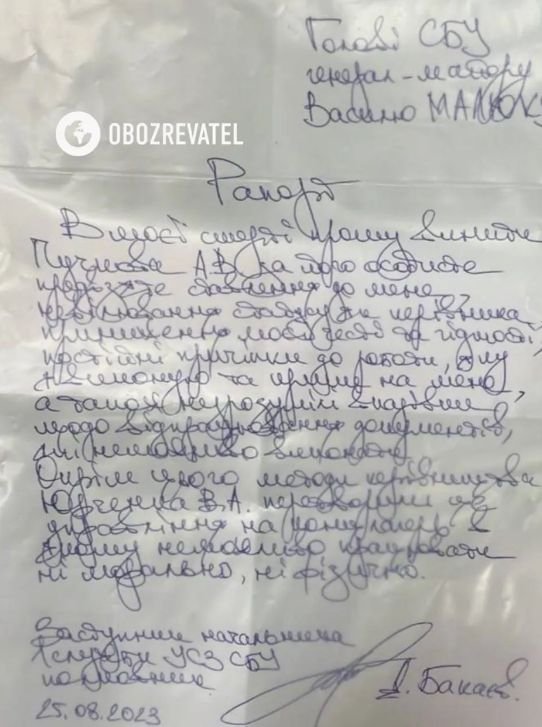 Голові СБУ
генерал-майору
Василю МАЛЮКУ
OBOZREVATEL
Рапорт
В моєї смерті прошу винити
А.В. за його особисте
ставлення до мене,
керівника,
приниження моєї честі та гідності,
постійні причіпки до роботи, яку
виконую та на мене,
а також незрозумілі вказівки
щодо відпрацювання документів,
які неможливо виконати.
Окрім цього методи керівництва
Юрченка В.А. перетворили
управління на концтабір в
якому неможливо працювати
ні морально, ні фізично.
Заступник начальника
служби УСЗ СБУ
полковник
Бакаєв.
25.08.2023